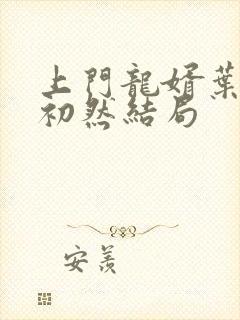 上門龍婿葉
初然結局
安羨